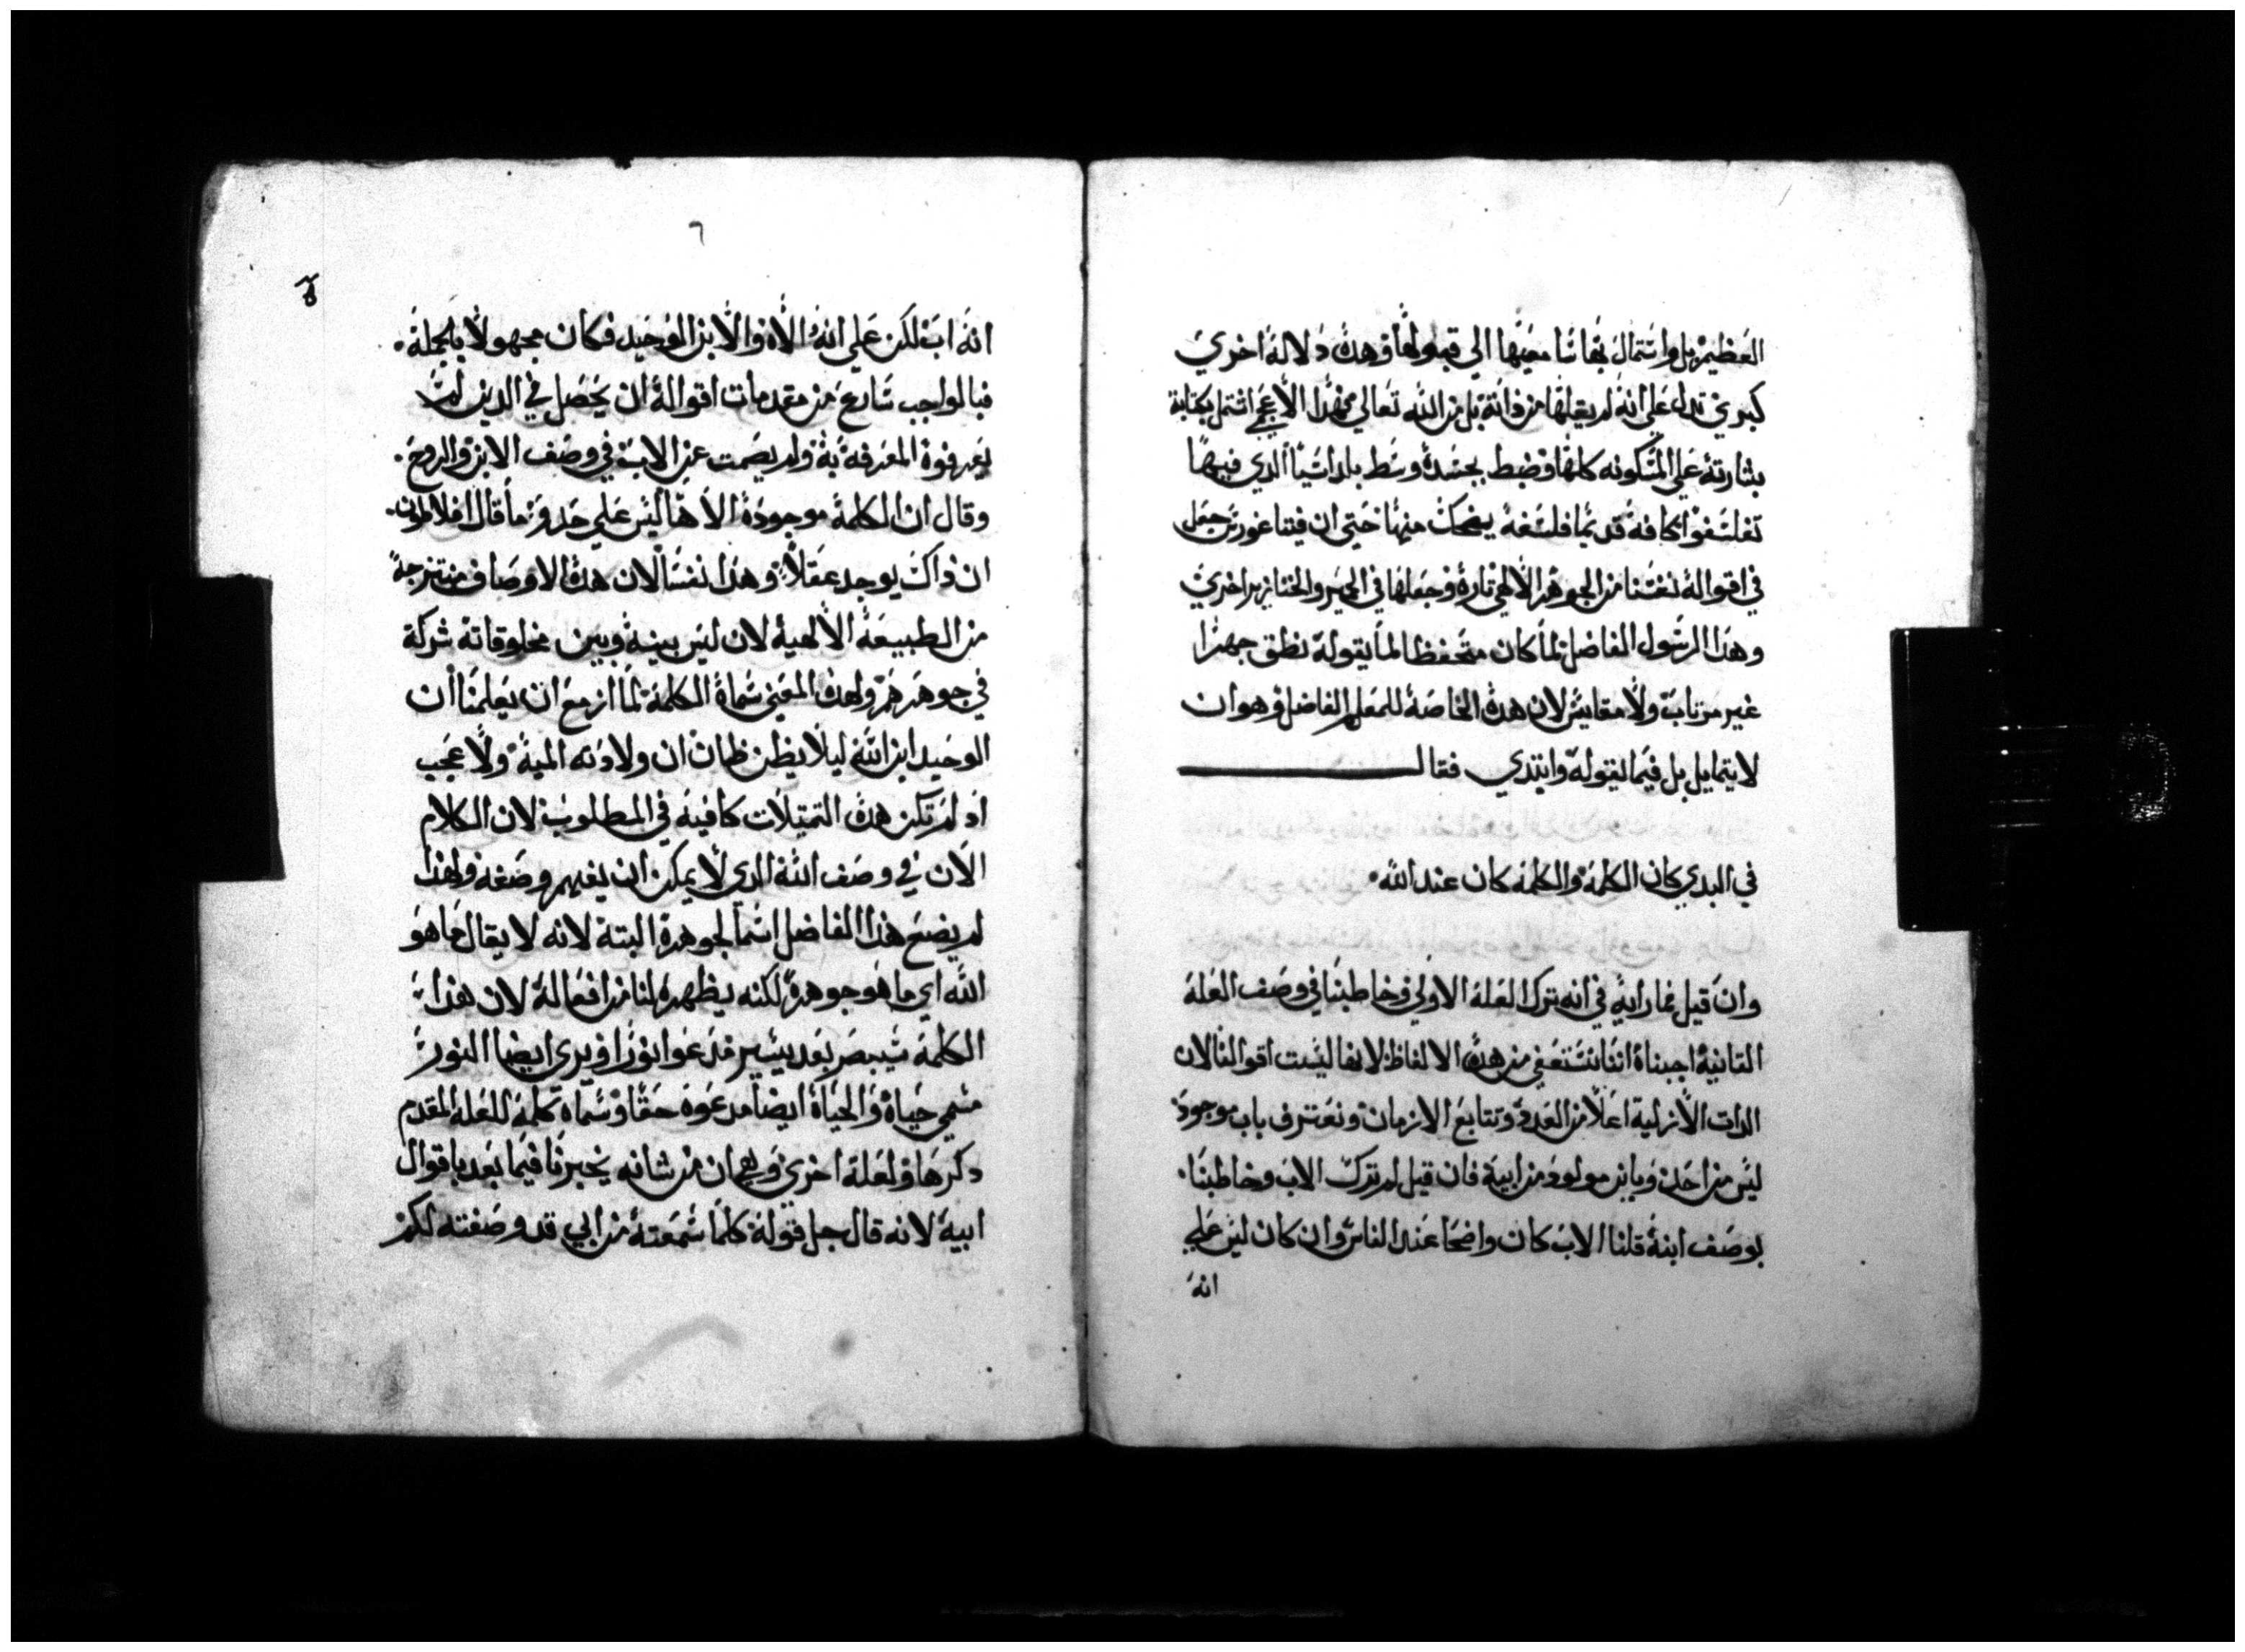 العظيم بل واشتمال بقاشا معينها الي قبولها وهده دلالة اخري
كبري تدل علي انه لم يقلها من داته بل من الله تعالي فهدا الاعجمي اشتمل بكتابة
بشارته علي المسكونه كلها وضبط بجسده وسط بلد اسيا الدي فيها
تفلسفوا كافة قديما فلسفه يضحك منها حتي ان فيتاغورس جعل
في اقواله نفسنا من الجوهر الالهي تارة وجعلها في الحمير والخنازير اخري
وهدا الرسول الفاضل لما كان متحفظا لما يقوله نطق جهرا
غير مرتاب ولا مقايس لان هده الخاصه للمعلم الفاضل وهو ان
لا يتمايل بل فيما يقوله وابتدي فقال
في البدي كان الكلمة والكلمة كان عند الله
وان قيل فما رايه في انه ترك العله الاولي وخاطبنا في وصف العلة
التانية اجبناه اننا نستعفي من هده الالفاظ لانها ليست اقوالنا لان
الدات الازلية اعلا من العدد وتتابع الازمان ونعترف باب موجود
ليس من احد وبابن مولود من ابيه فان قيل لم ترك الاب وخاطبنا
بوصف ابنه قلنا الاب كان واضحا عند الناس وان كان ليس علي
انه
٦
انه اب لكن علي انه الاه والابن الوحيد فكان مجهولا بالجملة
فبالواجب سارع من مقدمات اقواله ان يحصل في الدين لم
يعرفوه المعرفه به ولم يصمت عن الاب في وصف الابن والروح
وقال ان الكلمة موجودة الاها ليس علي حد وما قال افلاطون
ان داك يوجد عقلا وهدا نفسا لان هده الاوصاف منتزحة
من الطبيعة الالهية لان ليس بينه وبين مخلوقاته شركة
في جوهرهم ولهدا المعني سماه الكلمة لما ازمع ان يعلمنا ان
الوحيد ابن الله ليلا يظن ظان ان ولادته المية ولا عجب
اد لم تكن هده التمتيلات كافيه في المطلوب لان الكلام
الان في وصف الله الدي لا يمكن ان يفهم وصفه ولهدا
لم يضع هدا الفاضل اسما لجوهرة البتة لانه لا يقال ما هو
الله اي ما هو جوهرة لكنه يظهره لنا من افعاله لان هدا
الكلمة سيبصر بعد يسير مدعوا نورا ويري ايضا النور
مسمي حياة والحياة ايضا مدعوه حقا وسماه كلمة للعلة المقدم
دكرها ولعلة اخري وهي ان من شانه يخبرنا فيما بعد باقوال
ابيه لانه قال جل قوله كلما سمعته من ابي قد وصفته لكم